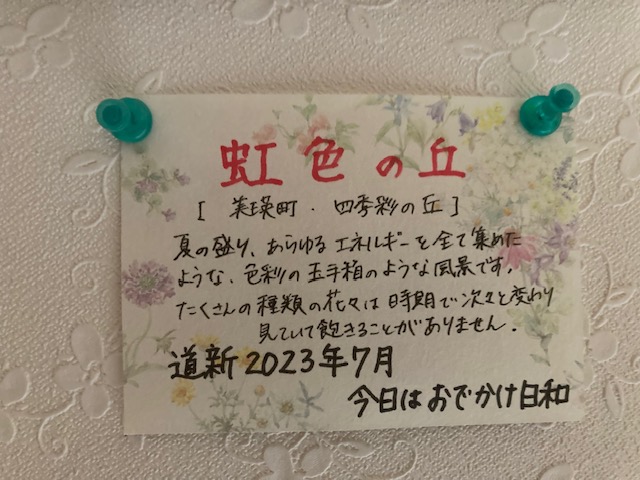 虹色の丘
[ 美瑛町・四季彩の丘 ]
夏の盛り、あらゆるエネルギーを全て集めた
ような、色彩の玉手箱のような風景です。
たくさんの種類の花々は時期で次々と変わり
見ていて飽きることがありません.
道新2023年7月
今日はおでかけ日和